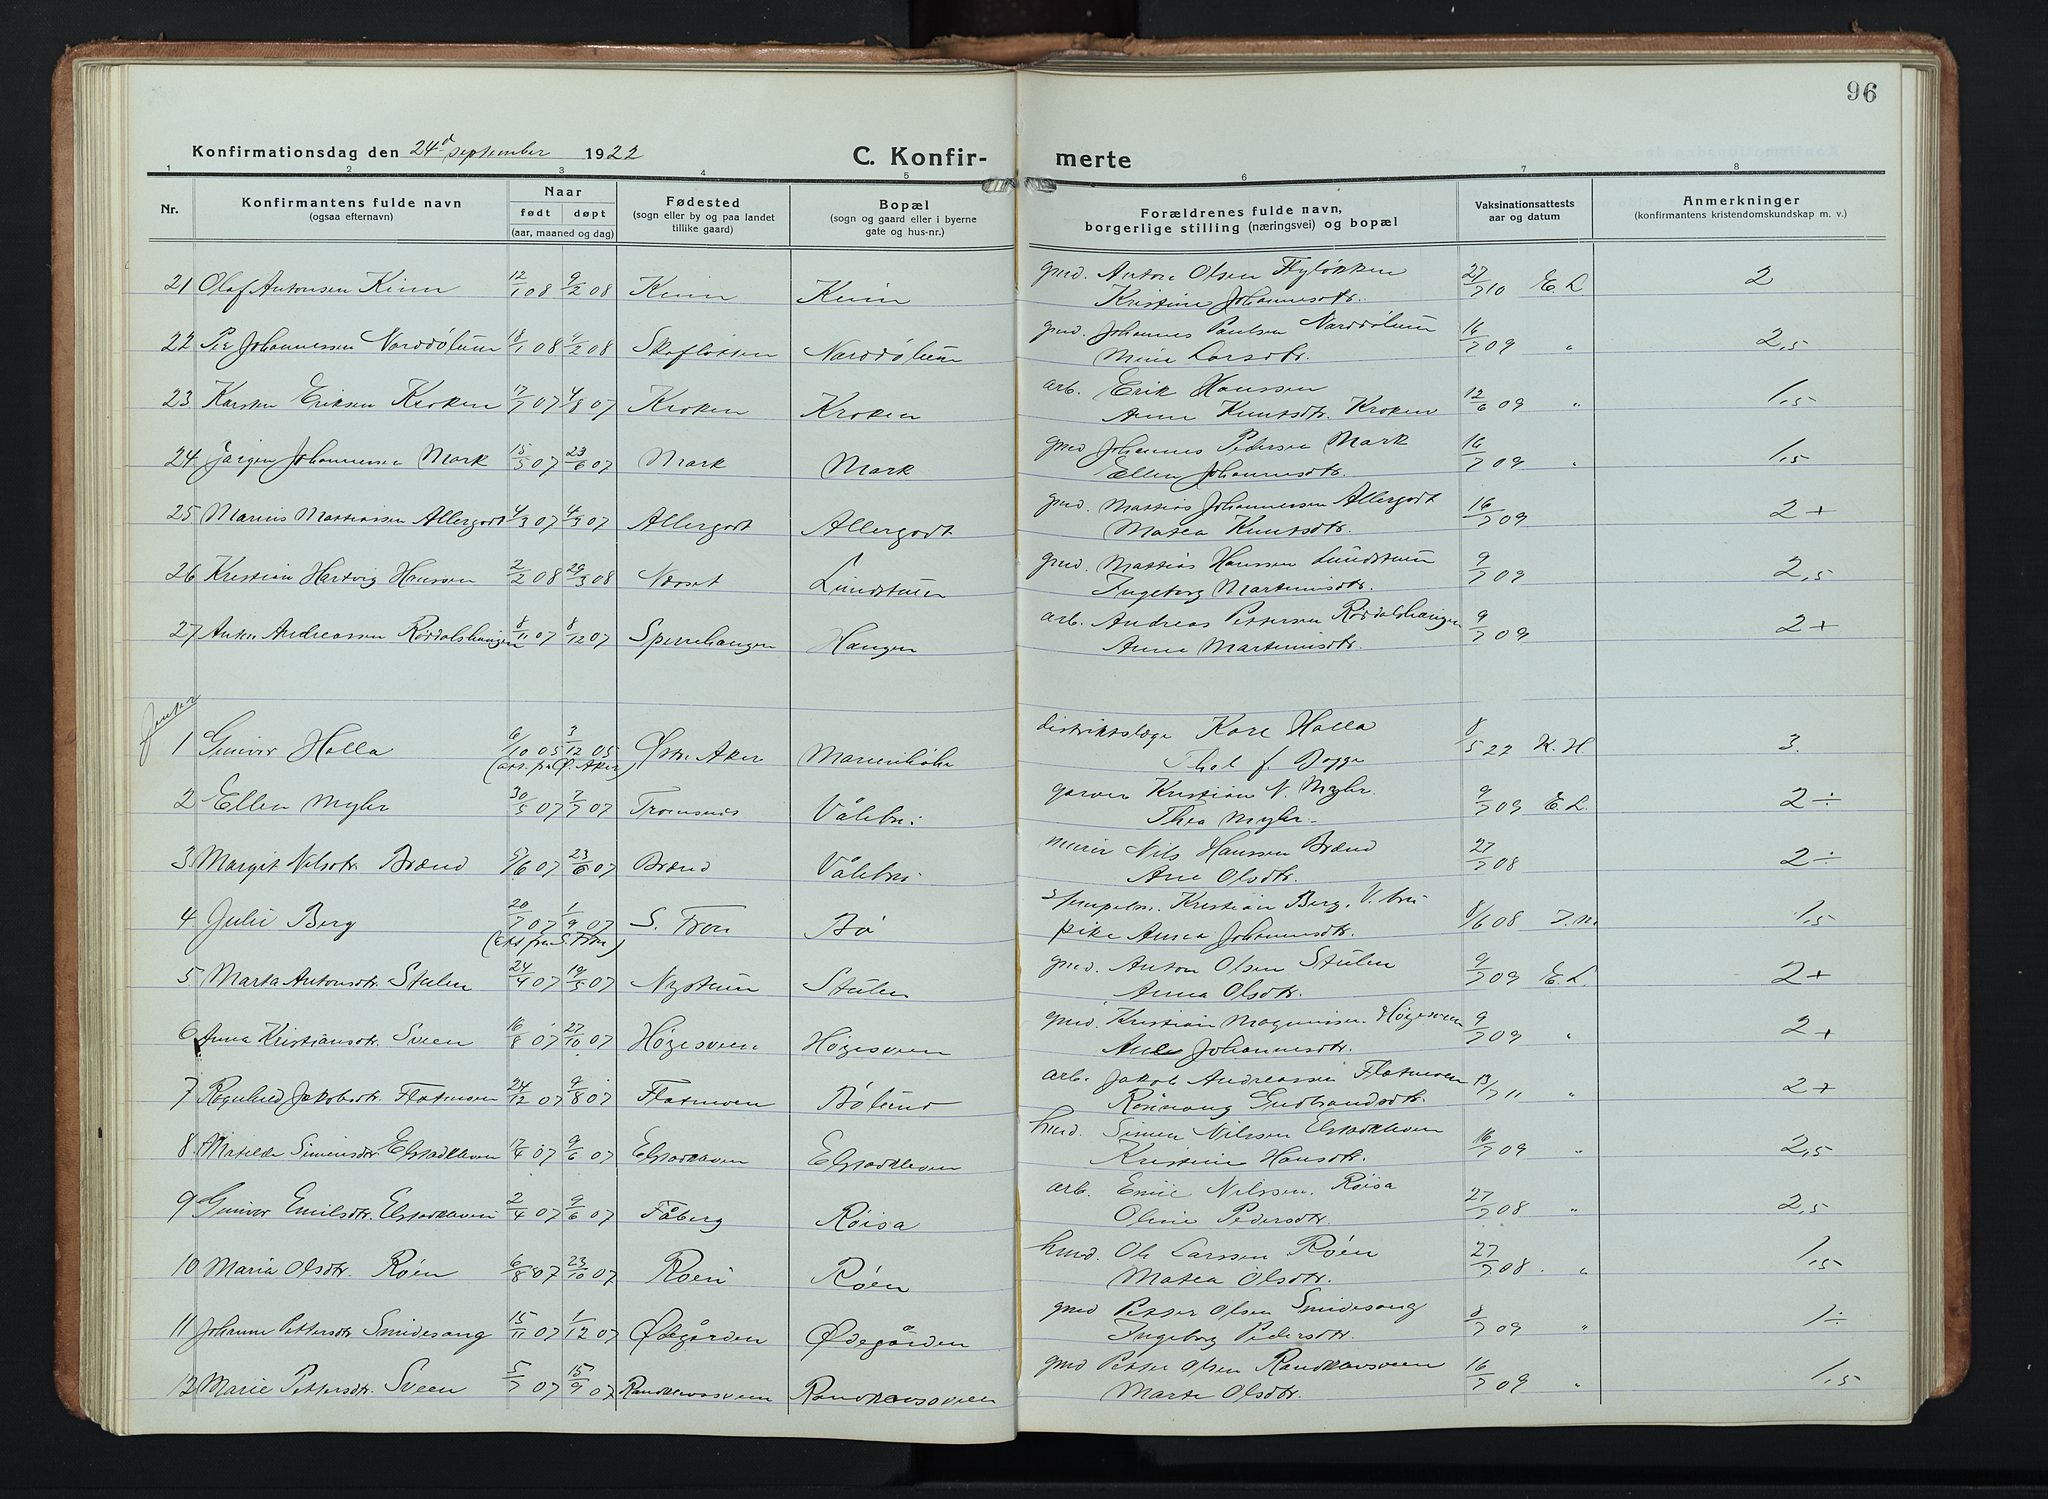 96
Konfirmationsdag den 24d september 1922
C. Konfir- merte
1 2 3 4 5 6 7 8
Nr. Konfirmantens fulde navn (ogsaa efternavn) Naar født døpt (aar, maaned og dag) Fødested (sogn eller by og paa landet tillike gaard) Bopæl (sogn og gaard eller i byerne gate og hus-nr.) Forældrenes fulde navn, borgerlige stilling (næringsvei) og bopæl Vaksinationsattests aar og datum Anmerkninger (konfirmantens kristendomskundskap m. v.)
21 Olaf Antonsen Kinn 12/1 08 9/2 08 Kinn Kinn gmd. Anton Olsen Flyløkken 27/7 10 E. L. 2
Kristine Johannesdtr.
22 Per Johannessen Norddølum 18/1 08 4/2 08 Skofløkken Norddølum gmd. Johannes Paulsen Norddølum 16/7 09 " 2,5
Mina Larsdtr.
23 Karsten Eriksen Kroken 17/7 07 4/8 07 Kroken Kroken arb. Erik Hanssen 12/6 09 " 1,5
Anne Knutsdtr. Kroken
24 Jørgen Johannessen Mork 15/5 07 23/6 07 Mork Mork gmd Johannes Pedersen Mork 16/7 09 " 1,5
Ellen Johannesdtr.
25 Marius Mattiassen Allergodt 4/3 07 4/5 07 Allergodt Allergodt gmd. Mattias Johannessen Allergodt 16/7 09 2+
Matea Knutsdtr.
26 Kristian Hartvig Hanssen 2/2 08 29/3 08 Nerset Lundstuen gmd. Mattias Hanssen Lundstuen 9/7 09 2,5
Ingeborg Martinusdtr.
27 Anton Andreassen Rørdalshaugen 8/11 07 8/12 07 Sperrehaugen Haugen arb. Andreas Pettersen Rørdalshaugen 9/7 09 2+
Anna Martinusdtr.
Jenter
1 Gunvor Holla 6/10 05 3/12 05 Østre Aker Marienhöhe distriktslæge Kore Holla 8/5 22 K. H. 3.
(att. fra Ø. Aker) f. Dogge
2 Ellen Myhr 30/5 07 7/7 07 Tromsnes Vålebru garver Kristian N. Myhr. 9/7 09 E. L. 2÷
Thea Myhr.
3 Margit Nilsdtr. Brænd 5/6 07 23/6 07 Brænd Vålebru murer Nils Hanssen Brænd 27/7 08 2÷
Ane Olsdtr.
4 Julie Berg 20/7 07 1/9 07 S. Fron Bø Kristian Berg, V. bru 8/6 08 1,5
(att fra S. Fron) pike Anna Johannesdtr.
5 Marta Antonsdtr. Stulen 24/4 07 19/5 07 Nystuen Stulen gmd. Anton Olsen Stulen 9/7 09 E. L. 2+
Anna Olsdtr.
6 Anna Kristiansdtr. Sveen 16/8 07 27/10 07 Høgesveen Høgesveen gmd. Kristian Magnussen Høgesveen 9/7 09 " 2+
Ane Johannesdtr.
7 Ragnhild Jakobsdtr. Flatmoen 24/12 07 9/8 07 Flatmoen Bølund arb. Jakob Andreassen Flatmoen 13/7 11 " 2+
Rønnaug Gudbrandsdtr.
8 Matilde Simensdtr. Elstadkleven 17/4 07 9/6 07 Elstadkleven Elstadkleven hmd. Simen Nilssen Elstadkleven 16/7 09 " 2,5
Kristine Hansdtr.
9 Gunvor Emilsdtr. Elstadkleven 2/4 07 9/6 07 Fåberg Røisa arb. Emil Nilssen. Røisa 27/7 08 " 2,5
Oline Pedersdtr.
10 Maria Olsdtr. Røen 6/8 07 23/10 07 Røen Røen hmd. Ole Larssen Røen 27/7 08. " 1,5
Matea Olsdtr.
11 Johanne Pettersdtr Smidesang 15/11 07 1/12 07 Ødegården Ødegården gmd Petter Olsen Smidesang 8/7 09 " 1÷
Ingeborg Pedersdtr.
12 Marie Pettersdtr. Sveen 5/7 07 15/9 07 Randkleivsveen Randkleivsveen gmd Petter Olsen Randkleivsveen 16/7 09 " 1,5
Marte Olsdtr.